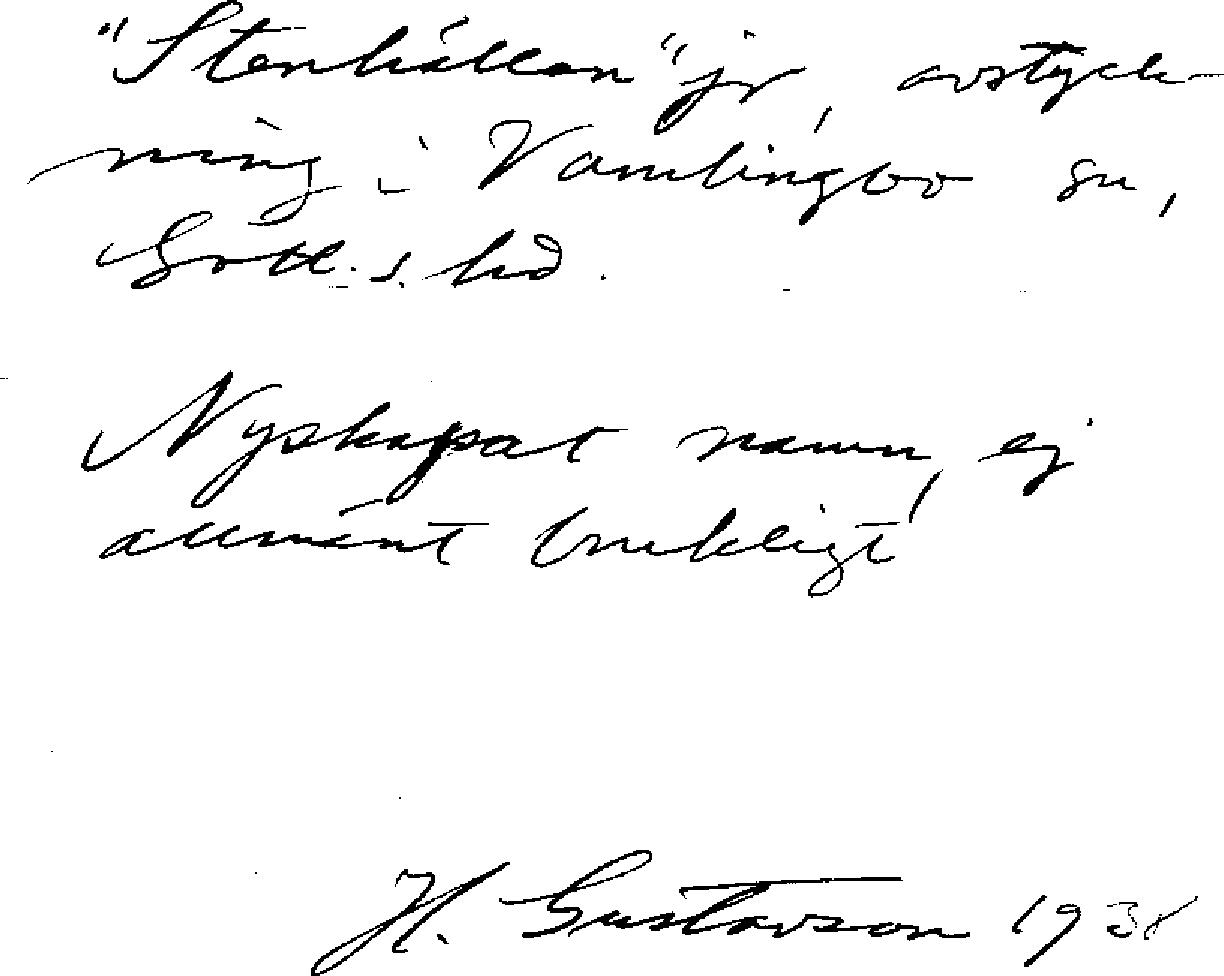 "Stenhällan" jr, avstyck-
ning i Vamlingbo sn,
Gotl. s. hd.
Nyskapat namn, ej
allmänt brukligt
H. Gustavson 1938